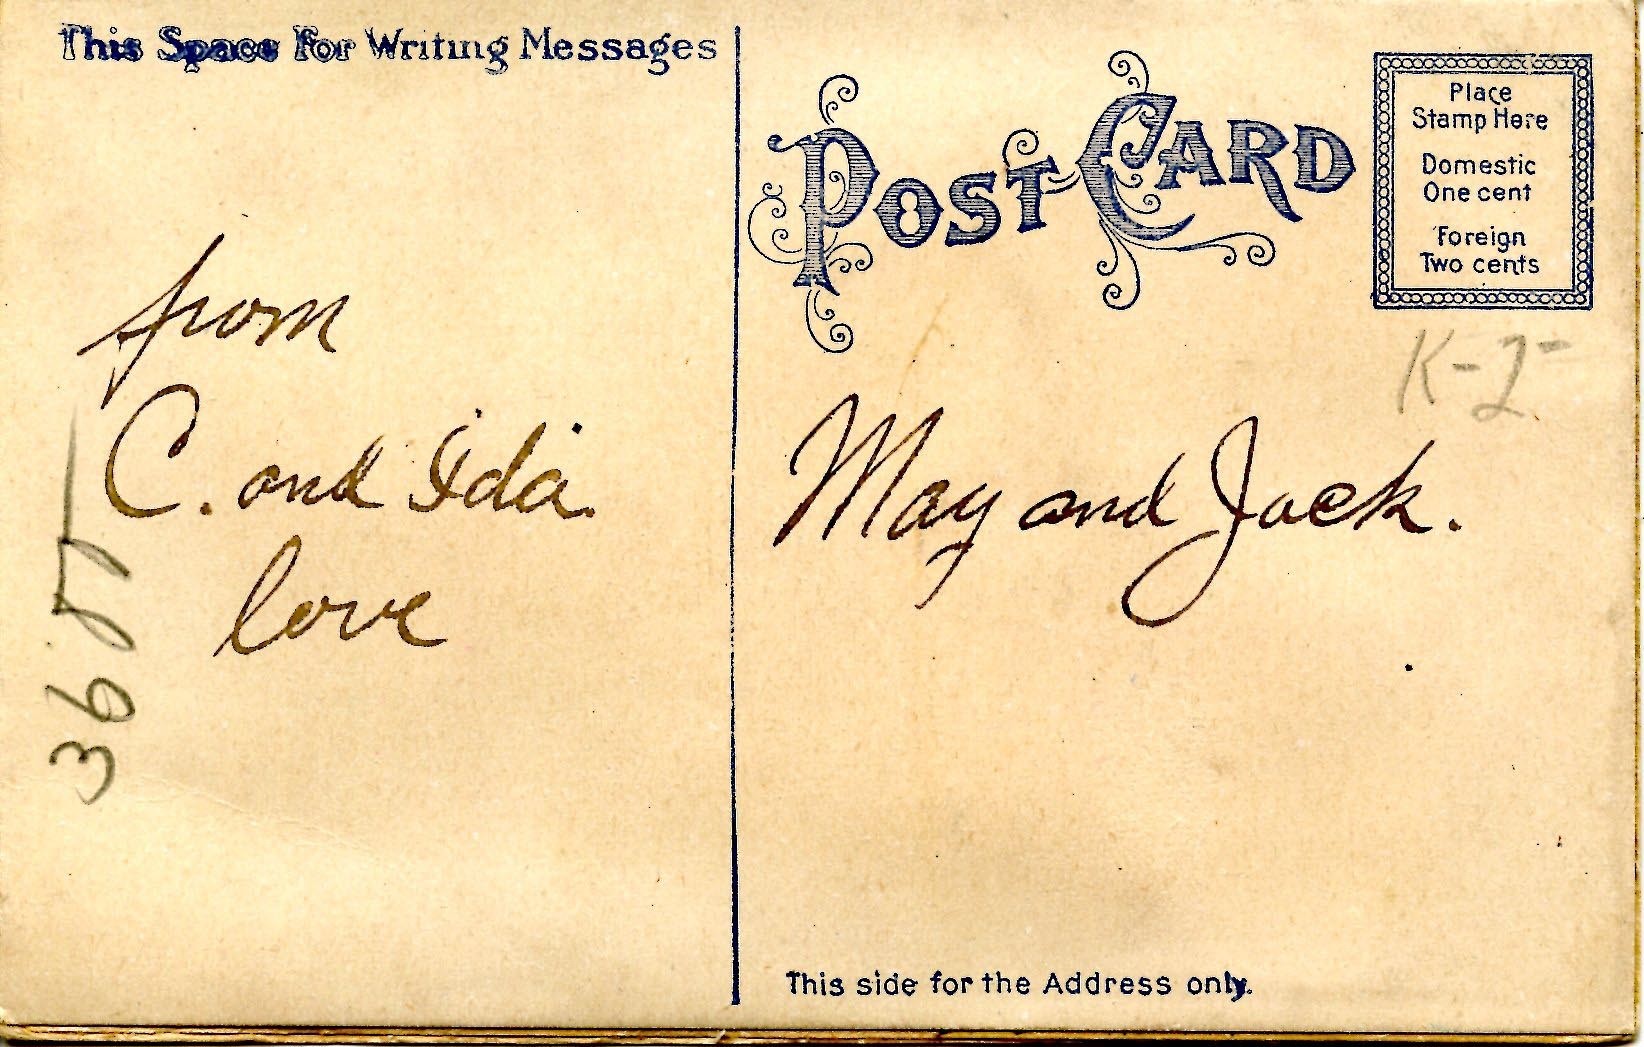 This Space For Writing Messages
POST CARD
Place
Stamp Here
Domestic
One cent
Foreign
Two cents
K-2-
from
C. and Ida.
love
May and Jack.
This side for the Address only.